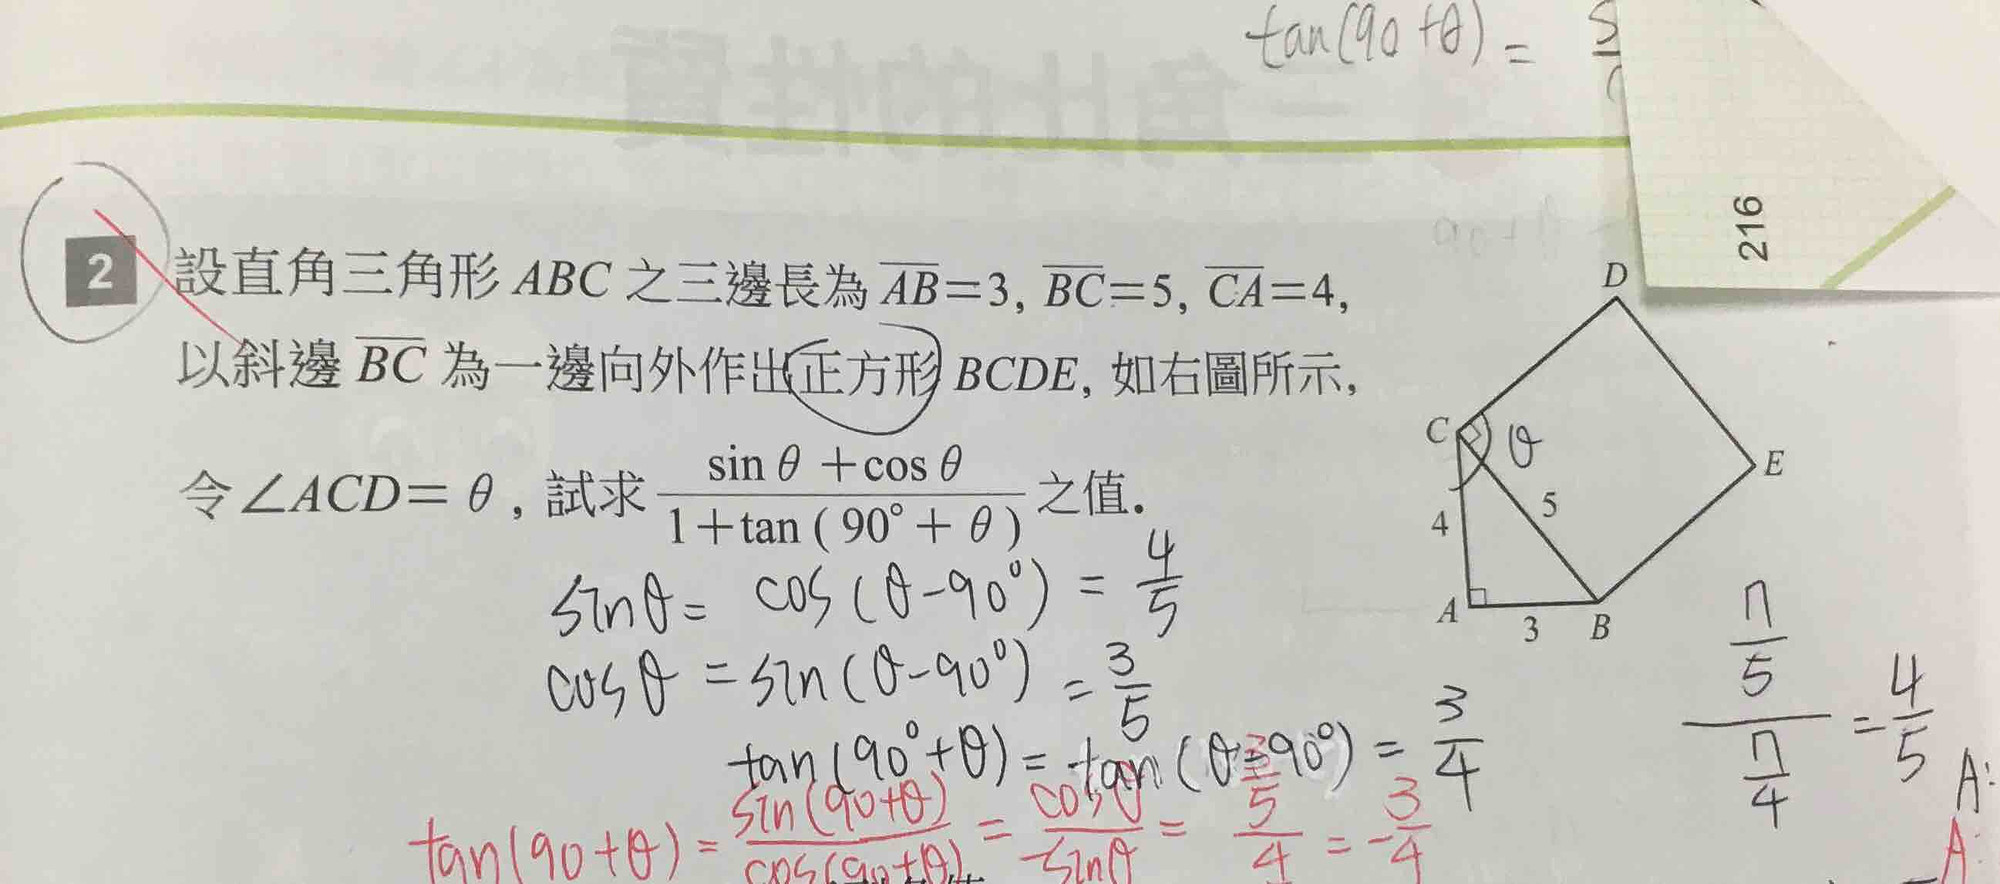 tan(90+θ) =
216
2 設直角三角形 ABC 之三邊長為 AB=3, BC=5, CA=4,
以斜邊 BC 為一邊向外作出正方形 BCDE, 如右圖所示,
令∠ACD= θ , 試求 (sin θ +cos θ)/(1+tan ( 90° + θ )) 之值.
D
C
θ
E
5
4
A
3
B
sinθ = cos(θ-90°) = 4/5
cosθ = sin(θ-90°) = 3/5
tan(90°+θ) = tan(θ-90°) = 3/4
(7/5)/(7/4) = 4/5
A:
tan(90+θ) = sin(90+θ)/cos(90+θ) = cosθ/-sinθ = (3/5)/4 = -3/4
A: